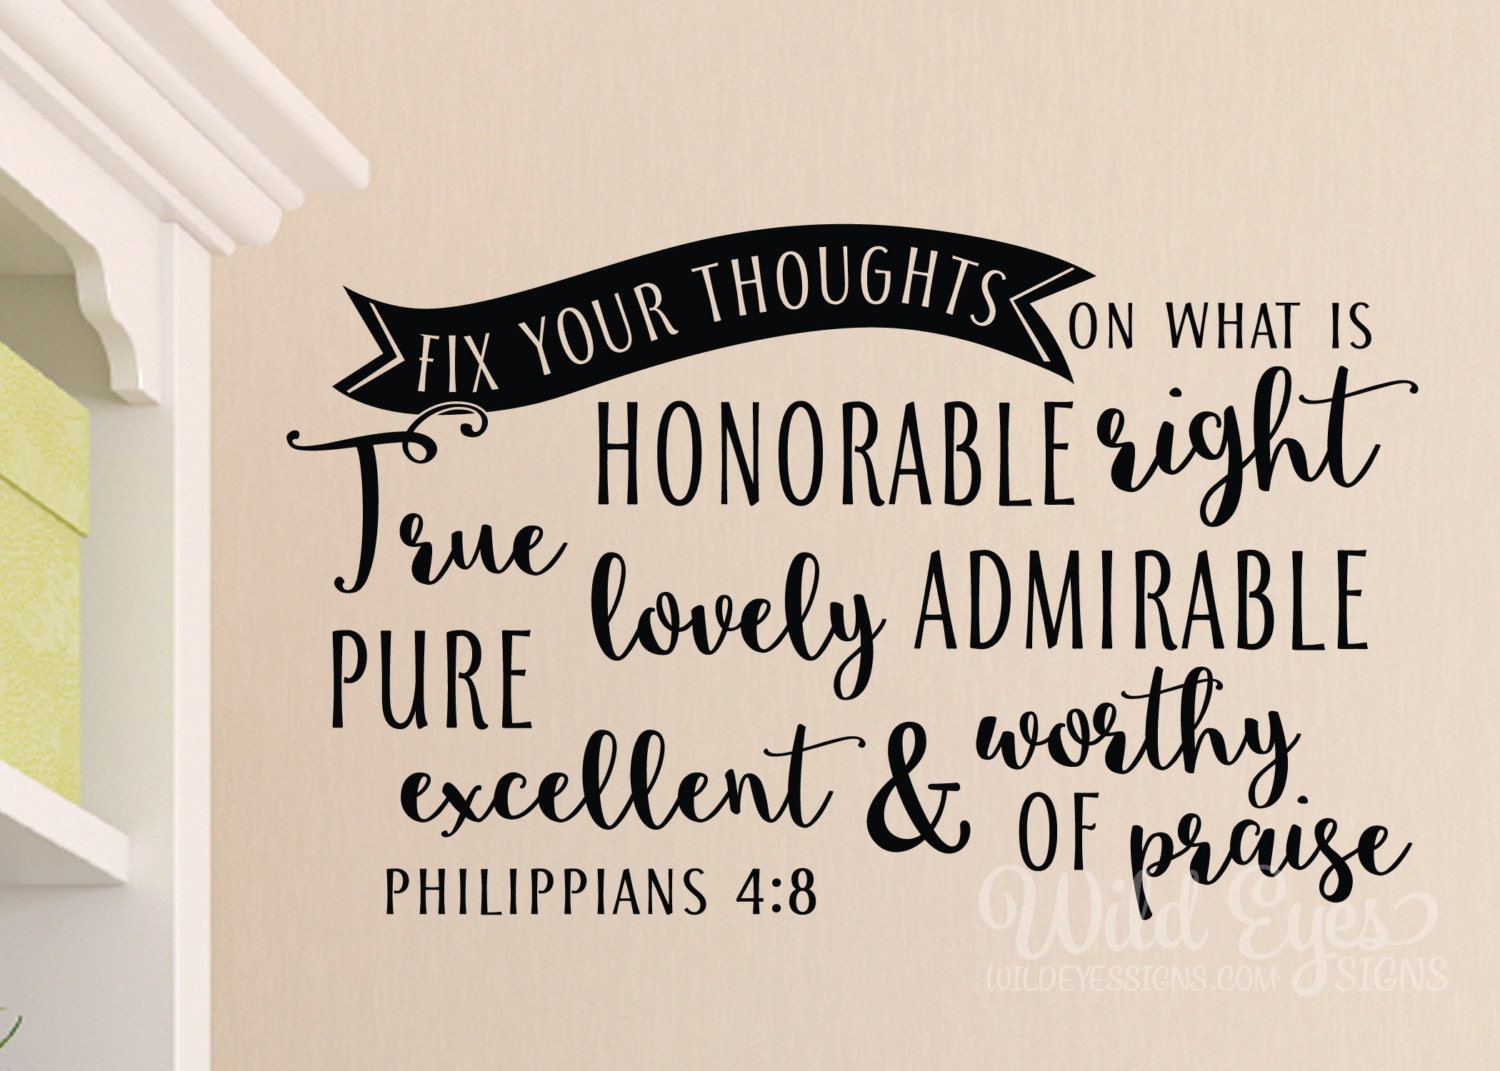 FIX YOUR THOUGHTS ON WHAT IS
True HONORABLE right
PURE lovely ADMIRABLE
excellent & worthy
OF praise
PHILIPPIANS 4:8
Wild Eyes
WILDEYESSIGNS.COM SIGNS